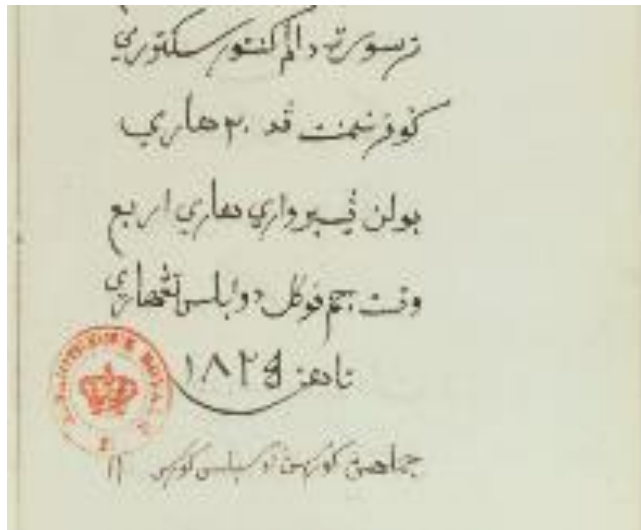 ترسورت دالم كنتور سكتوري
كوفرنمنت ڤد ٢٠ هاري
بولن ڤيبرواري هاري اربع
وقت جم ڤوكل دوابلس تڠهاري
تاهن ١٨٢٤
BIBLIOTHEQUE ROYALE